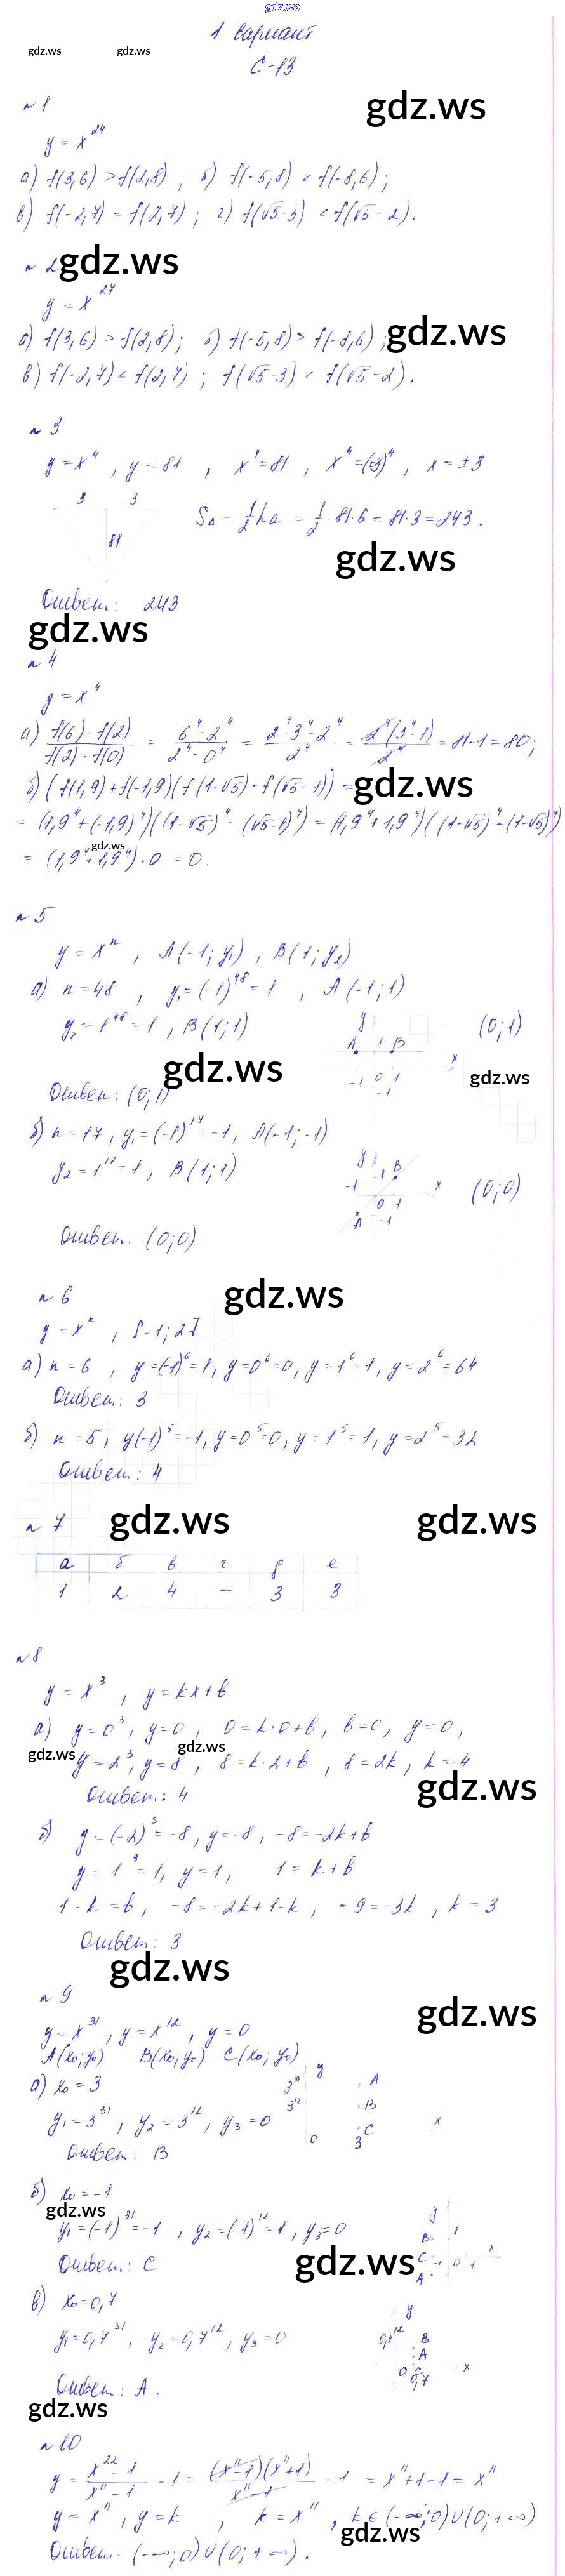 gdz.ws
1 вариант
gdz.ws gdz.ws
С-13
№1
gdz.ws
y = x^24
а) f(3,6) > f(2,8) ; б) f(-5,8) < f(-8,6) ;
в) f(-2,7) = f(2,7) ; г) f(√5-3) < f(√5-2).
№2
gdz.ws
y = x^27
а) f(3,6) > f(2,8) ; б) f(-5,8) > f(-8,6) ;
gdz.ws
в) f(-2,7) < f(2,7) ; f(√5-3) < f(√5-2).
№3
y = x^4 , y = 81 , x^4 = 81 , x^4 = (±3)^4 , x = ±3
3 3
S∆ = 1/2 ha = 1/2 · 81·6 = 81·3 = 243.
81
gdz.ws
Ответ: 243
gdz.ws
№4
y = x^4
а) (f(6)-f(2))/(f(2)-f(0)) = (6^4-2^4)/(2^4-0^4) = (2^4·3^4-2^4)/2^4 = 2^4(3^4-1)/2^4 = 81-1 = 80;
б) (f(1,9)+f(-1,9)(f(1-√5)-f(√5-1)) =
gdz.ws
= (1,9^4+(-1,9)^4)((1-√5)^4-(√5-1)^4) = (1,9^4+1,9^4)((1-√5)^4-(1-√5)^4)
gdz.ws
= (1,9^4+1,9^4)·0 = 0.
№5
y = x^n , A(-1; y1) , B(1; y2)
а) n = 48 , y1 = (-1)^48 = 1 , A(-1; 1)
y2 = 1^48 = 1 , B(1; 1)
y
(0; 1)
A 1 B
x
-1 0 1
-1
gdz.ws
gdz.ws
Ответ: (0; 1)
б) n = 17 , y1 = (-1)^17 = -1 , A(-1; -1)
y2 = 1^17 = 1 , B(1; 1)
y
1 B
-1 x
(0; 0)
0 1
A -1
Ответ. (0; 0)
№6
gdz.ws
y = x^n , [-1; 2]
а) n = 6 , y = (-1)^6 = 1, y = 0^6 = 0, y = 1^6 = 1, y = 2^6 = 64
Ответ: 3
б) n = 5, y(-1)^5 = -1, y = 0^5 = 0, y = 1^5 = 1, y = 2^5 = 32
Ответ: 4
№7
gdz.ws gdz.ws
а б в г д е
1 2 4 – 3 3
№8
y = x^3 , y = kx + b
а) y = 0^3, y = 0 , 0 = k·0+b, b = 0, y = 0,
gdz.ws gdz.ws
y = 2^3, y = 8 , 8 = k·2+b , 8 = 2k, k = 4
gdz.ws
Ответ: 4
б) y = (-2)^3 = -8, y = -8, -8 = -2k+b
y = 1^3 = 1, y = 1, 1 = k+b
1-k = b, -8 = -2k+1-k, -9 = -3k , k = 3
Ответ: 3
gdz.ws
№9
gdz.ws
y = x^31 , y = x^12 , y = 0
A(x0; y0) B(x0; y0) C(x0; y0)
а) x0 = 3
y
3^31 A
3^12 B
C
x
0 3
y1 = 3^31 , y2 = 3^12 , y3 = 0
Ответ: B
б) x0 = -1
gdz.ws
y1 = (-1)^31 = -1 , y2 = (-1)^12 = 1, y3 = 0
y
B 1
C -1 0 1 x
A
Ответ: C
gdz.ws
в) x0 = 0,7
y1 = 0,7^31, y2 = 0,7^12, y3 = 0
y
0,7^12 B
A
0 C x
0,7
Ответ: A.
gdz.ws
№10
y = (x^22-1)/(x^11-1) - 1 = (x^11-1)(x^11+1)/(x^11-1) - 1 = x^11+1-1 = x^11
y = x^11 , y = k , k = x^11 , k ∈ (-∞; 0)∪(0; +∞)
gdz.ws
Ответ: (-∞; 0)∪(0; +∞).